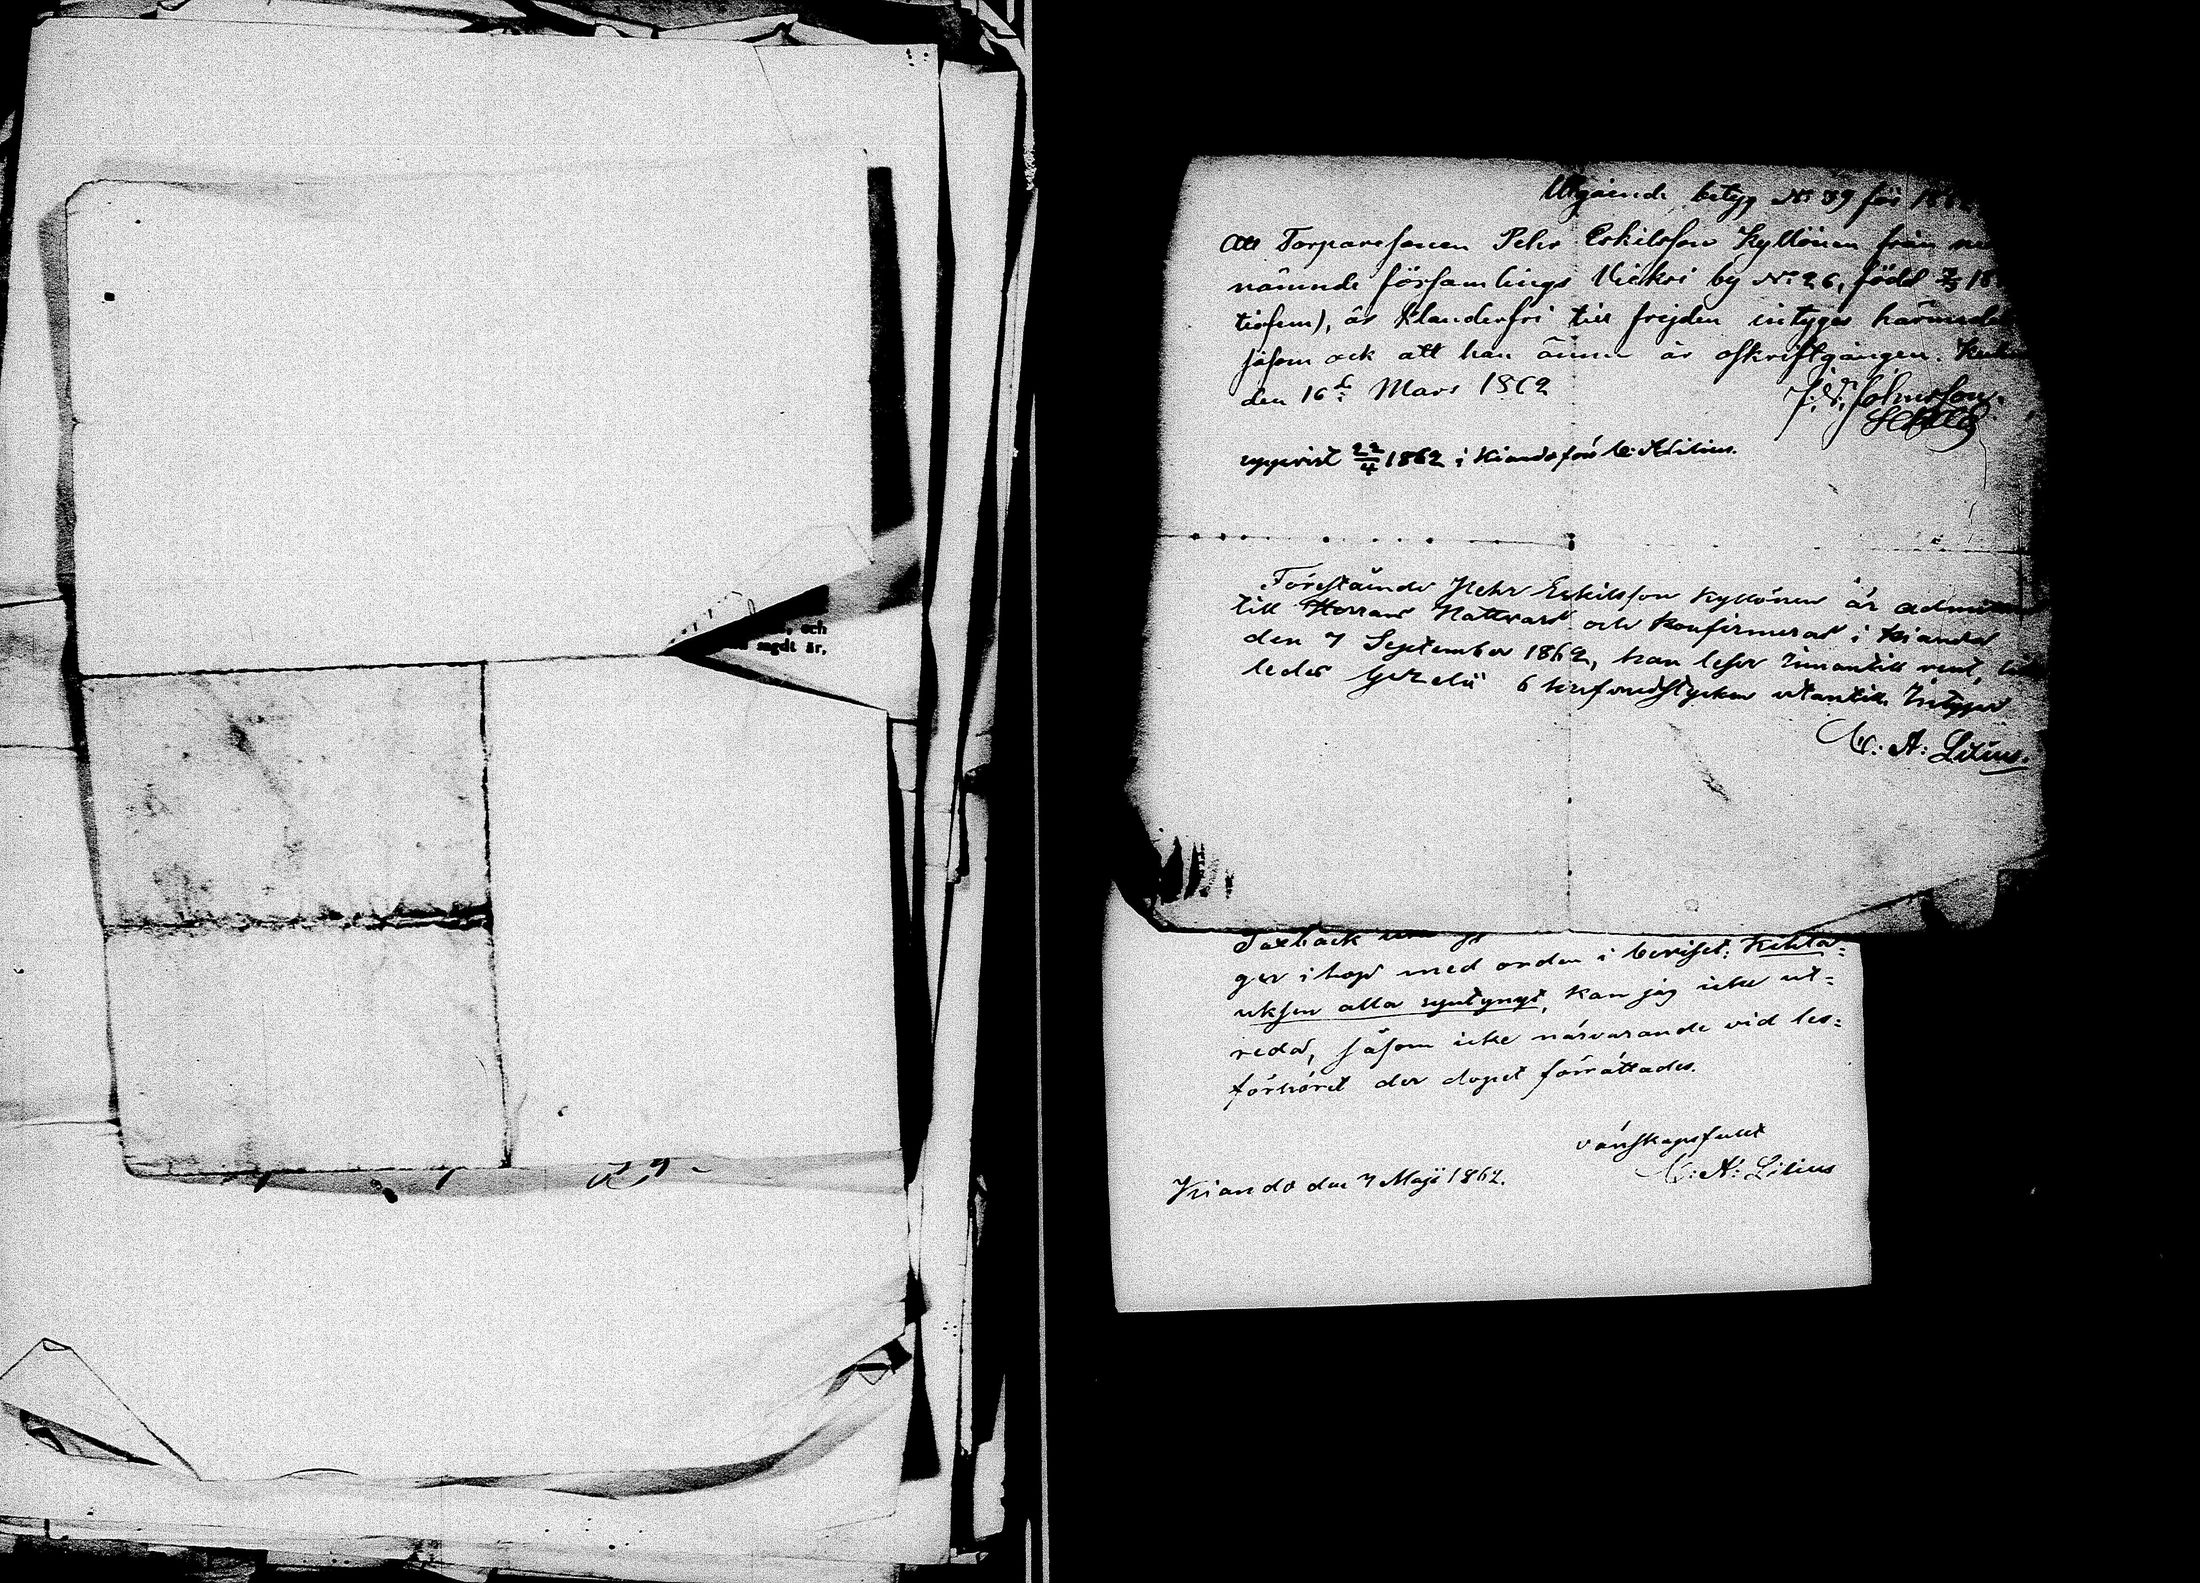 och
sagdt är,
Utgående betyg No 39 för 186
Att Torparesonen Pehr Eskilsson Kyllönen från
nämnde församlings Vieksi by No 26, född 7/3 18
tiofem), är klanderfri till frejden intygas härmedelst
såsom ock att han ännu är oskriftgången.
den 16d: Mars 1862
J. F. Johnsson.
uppvist 22/4 1862 i Kianda för C. A. Lilius.
Förestående Pehr Eskilsson Kyllönen är
till Herrans Nattvard och konfirmerad i Kianda
den 7 September 1862, han läser innantill rent,
ledes Gezelii 6 hufvudstycken utantill. Intygar
C: A: Lilius.
Taxback
ger ihop med orden i beviset: Kehta-
uksen alla syntynyt, kan jag icke ut-
reda, såsom icke närvarande vid läs-
förhöret der dopet förrättades.
vänskapsfullt
C: A: Lilius
Kiando den 7 Maji 1862.